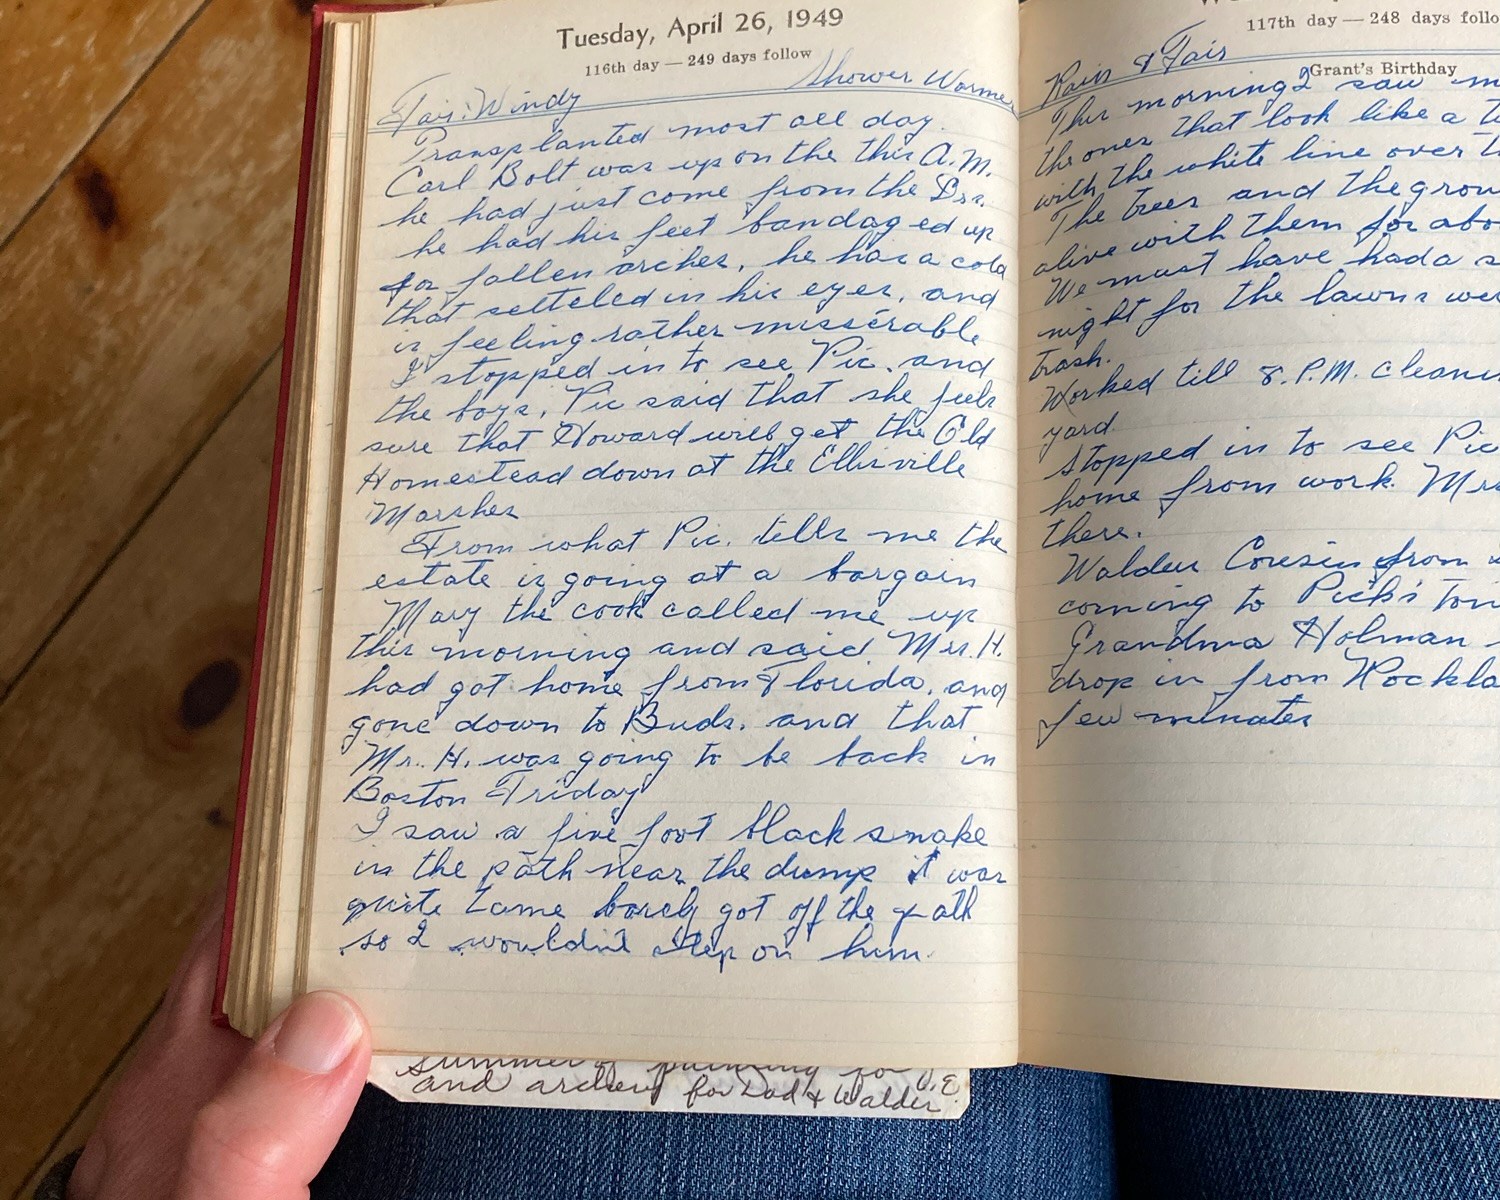 Tuesday, April 26, 1949
116th day — 249 days follow
Fair: Windy Shower Warmer
Transplanted most all day.
Carl Bolt was up on the this A.M.
he had just come from the Drs.
he had his feet bandaged up
for fallen arches, he has a cold
that setteled in his eyes, and
is feeling rather missérable
I stopped in to see Pic. and
the boys, Pic said that she feels
sure that Howard will get the Old
Homestead down at the Ellisville
Marshes
From what Pic. tells me the
estate is going at a bargain
Mary the cook called me up
this morning and said Mrs. H.
had got home from Florida, and
gone down to Buds. and that
Mr. H. was going to be back in
Boston Friday
I saw a five foot black snake
in the path near the dump it was
quite tame barely got off the path
so I wouldn't step on him.
summer of painting for O.E.
and archery for Dad & Walden
117th day — 248 days follo
Grant's Birthday
Rain & Fair
This morning I saw m
the ones that look like a te
with the white line over t
The trees and the grou
alive with them for abo
We must have had a s
night for the lawns wer
trash.
Worked till 8. P.M. cleani
yard
Stopped in to see Pic
home from work. Mrs
there.
Walden Cousin from
coming to Pick's ton
Grandma Holman
drop in from Rockla
few minutes